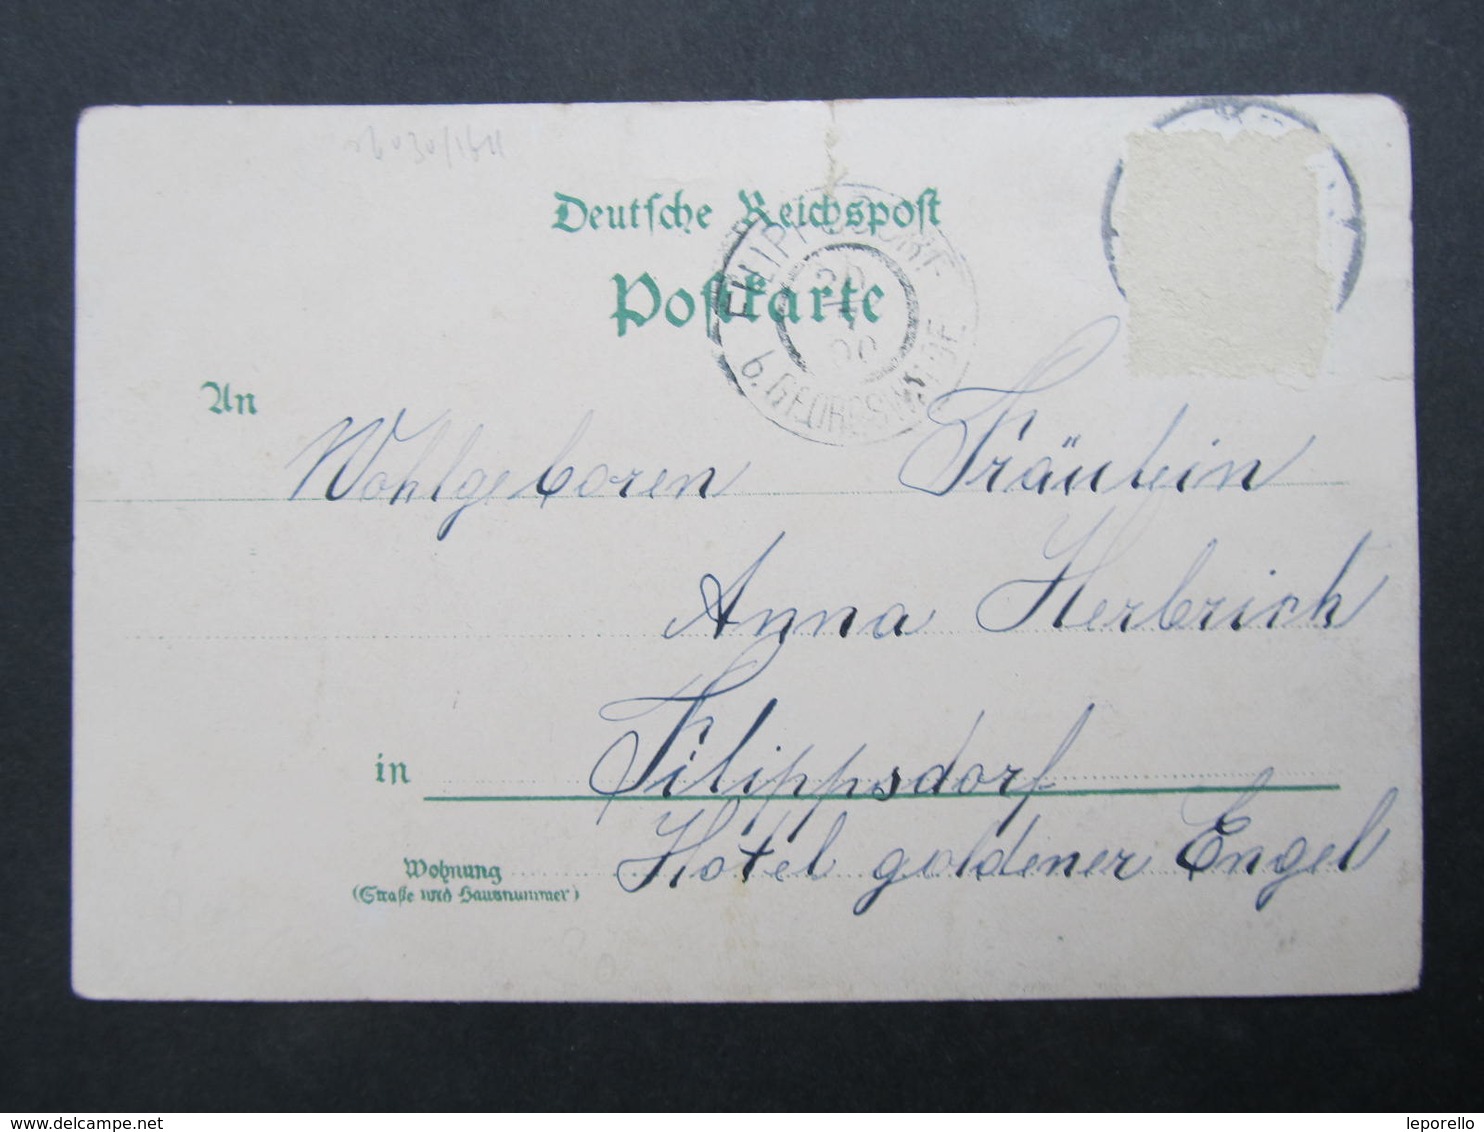 Deutsche Reichspost
Postkarte
FILIPPSDORF
20
7
00
b. GEORGSWALDE
An
Wohlgeboren Fräulein
Anna Herbrich
in Filippsdorf
Wohnung Hotel goldener Engel
(Straße und Hausnummer)
delcampe.net
leporello